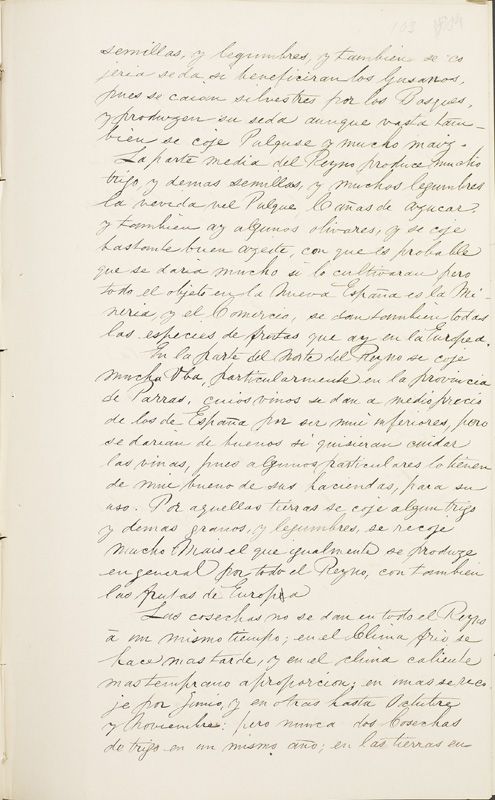 103
semillas, y legumbres, y tambien se co
jeria seda si beneficiran los Gusanos,
pues se caian silvestres por los Bosques,
y produzen su seda aunque vasta tam-
bien se coje Pulguse y mucho maiz.
La parte media del Reyno produce mucho
trigo, y demas semillas, y muchos legumbres
la veveda vel Pulque Cañas de Azucar,
y tambien ay algunos olivares, y se coje
bastante buen azeite, con que es probable
que se daria mucho si lo cultivaran pero
todo el objeto en la Nueva España es la Mi-
neria, y el Comercio, se dan tambien todas
las especies de frutas que ay en la Europea.
En la parte del norte del Reyno se coje
mucha Vba, particularmente en la provincia
de Parras, cuios vinos se dan a medio precio
de los de España por ser mui inferiores, pero
se darian de buenos si quisieran cuidar
las viñas, pues algunos particulares lo tienen
de mui bueno de sus haciendas, para su
uso. Por aquellas tierras se coje algun trigo
y demas granos, y lejumbres, se recoje
mucho Mais el que ygualmente se produze
en general por todo el Reyno, con tambien
las frutas de Europa
Las cosechas no se dan en todo el Reyno
á un mismo tiempo; en el Clima frio se
hace mas tarde, y en el clima caliente
mas temprano a proporcion; en unas se reco-
je por Junio, y en otras hasta Octubre
y Noviembre: pero nunca dos Cosechas
de trigo en un mismo año; en las tierras en